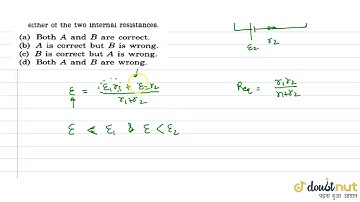 either of the two internal resistances.
(a) Both A and B are correct.
(b) A is correct but B is wrong.
(c) B is correct but A is wrong.
(d) Both A and B are wrong.
ε = ε₁r₁ + ε₂r₂ / r₁+r₂
ε < ε₁ & ε < ε₂
ε₂ r₂
Req = r₁r₂ / r₁+r₂
doubtnut
पढ़ना हुआ आसान